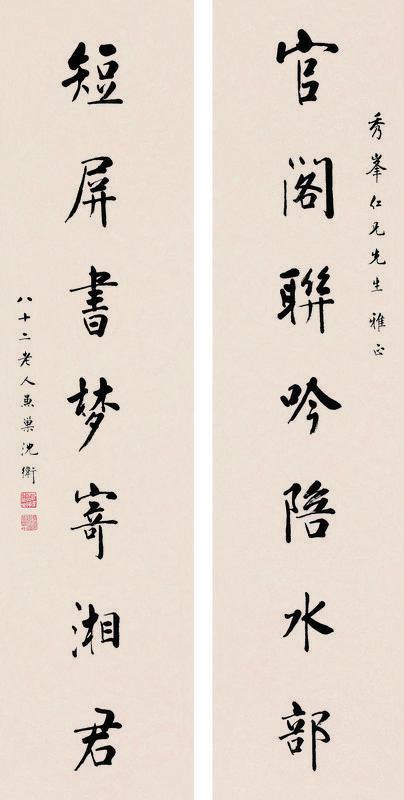 秀峯仁兄先生雅正
官阁聯吟陪水部
短屏書梦寄湘君
八十二老人兼巢沈衛